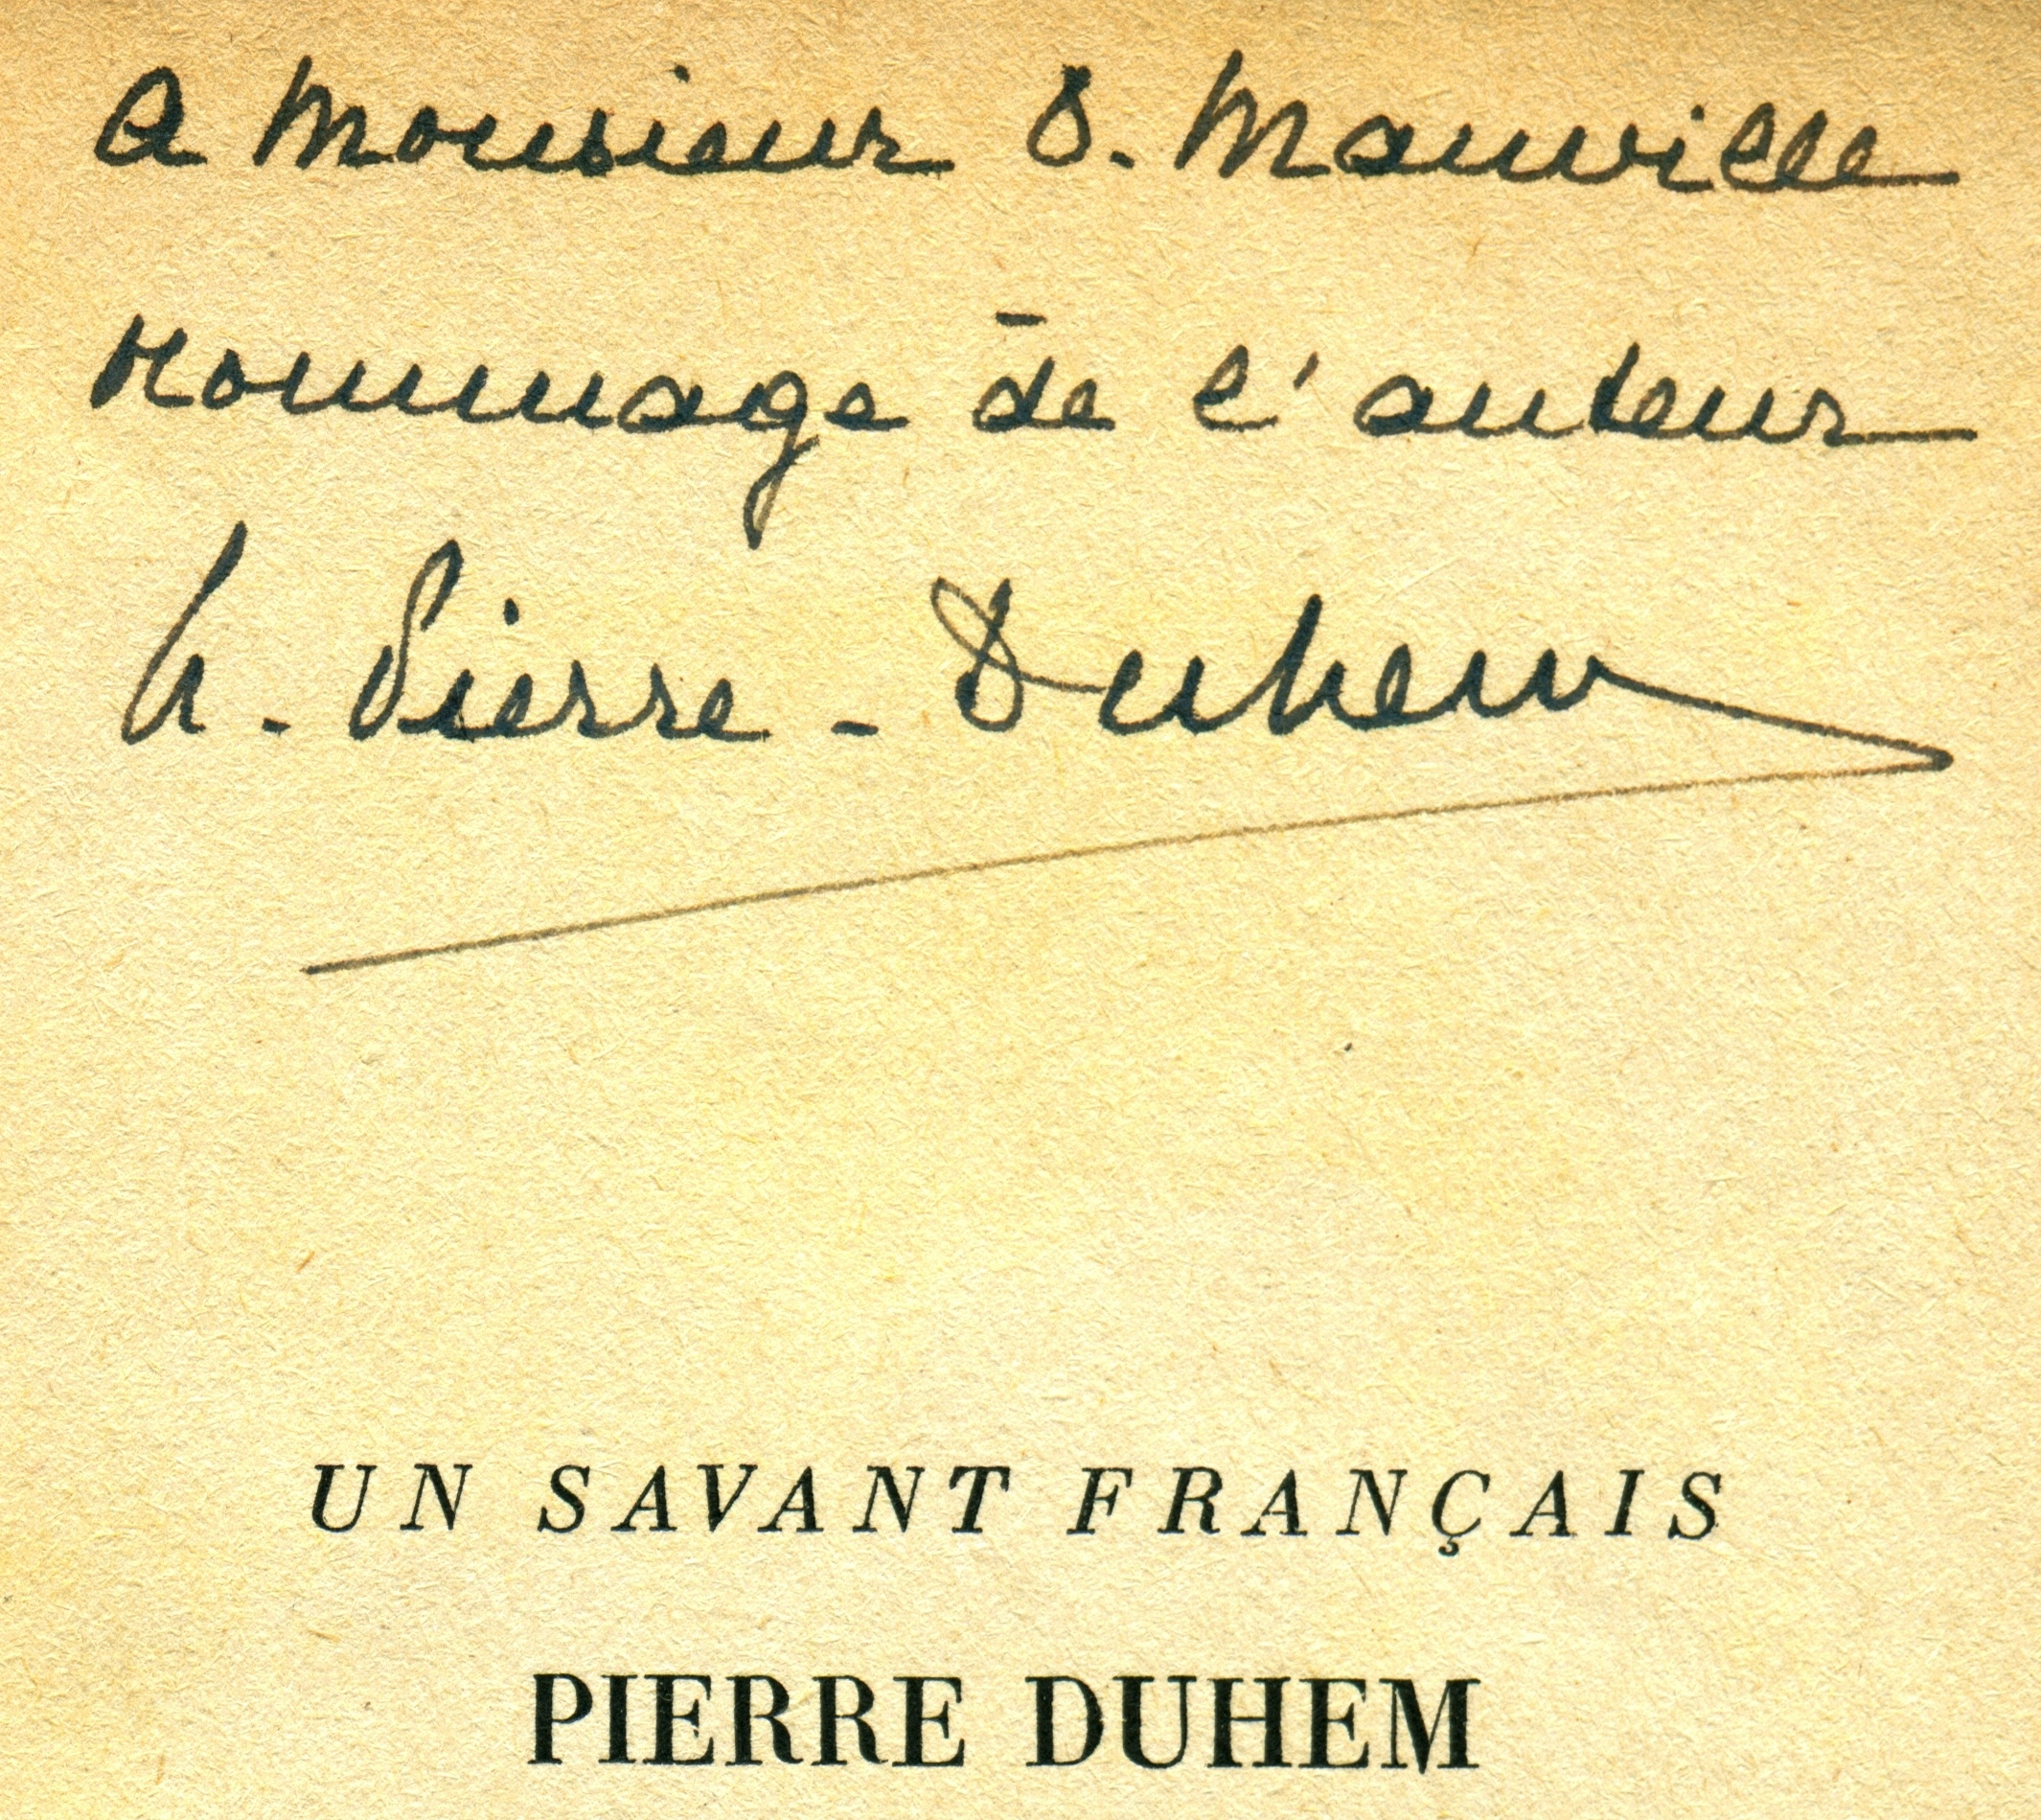 A Monsieur O. Manville
Hommage de l'auteur
H. Pierre-Duhem
UN SAVANT FRANÇAIS
PIERRE DUHEM